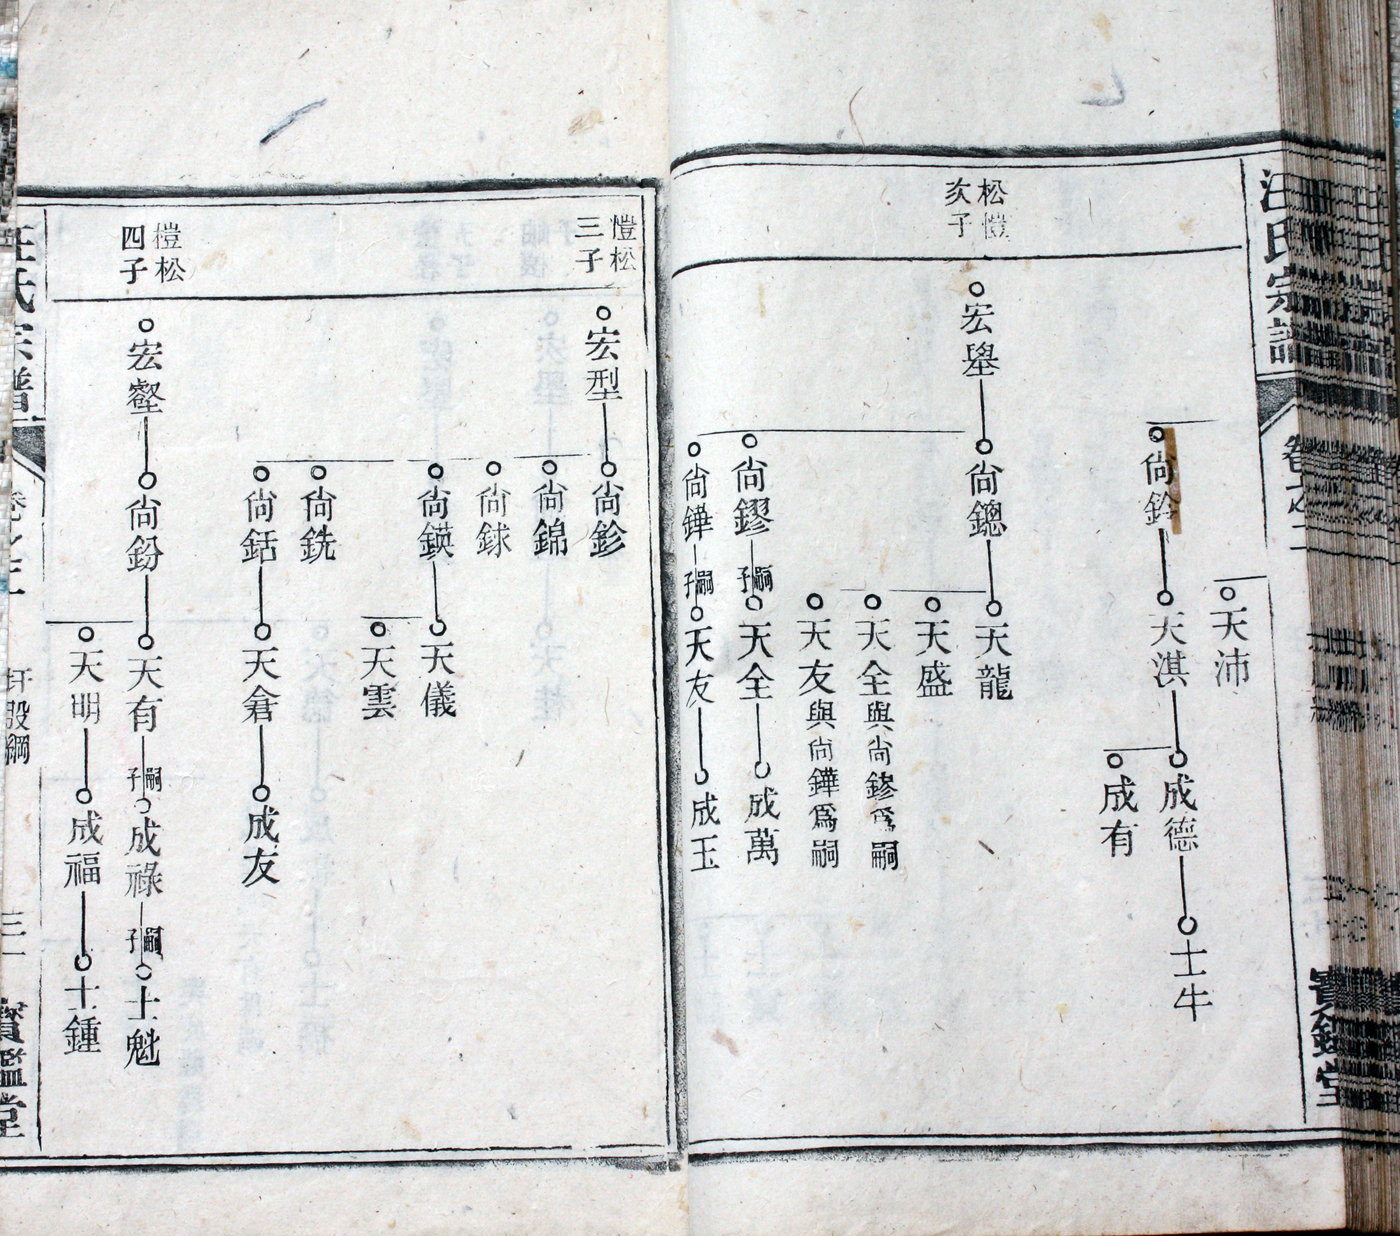 汪氏宗譜
寳鑑堂
天沛
尚鈴
天淇
成德
士牛
成有
松愷
次子
宏壆
尚鏓
天龍
天盛
天全與尚鏐爲嗣
天友與尚鏵爲嗣
尚鏐
嗣子
天全
成萬
尚鏵
嗣子
天友
成玉
愷松
三子
宏型
尚鉁
尚錦
尚銶
尚鍈
天儀
天雲
尚銑
尚銛
天倉
成友
愷松
四子
宏壑
尚鈖
天有
嗣子
成祿
嗣子
士魁
天明
成福
士鍾
汪氏宗譜
三一
寳鑑堂